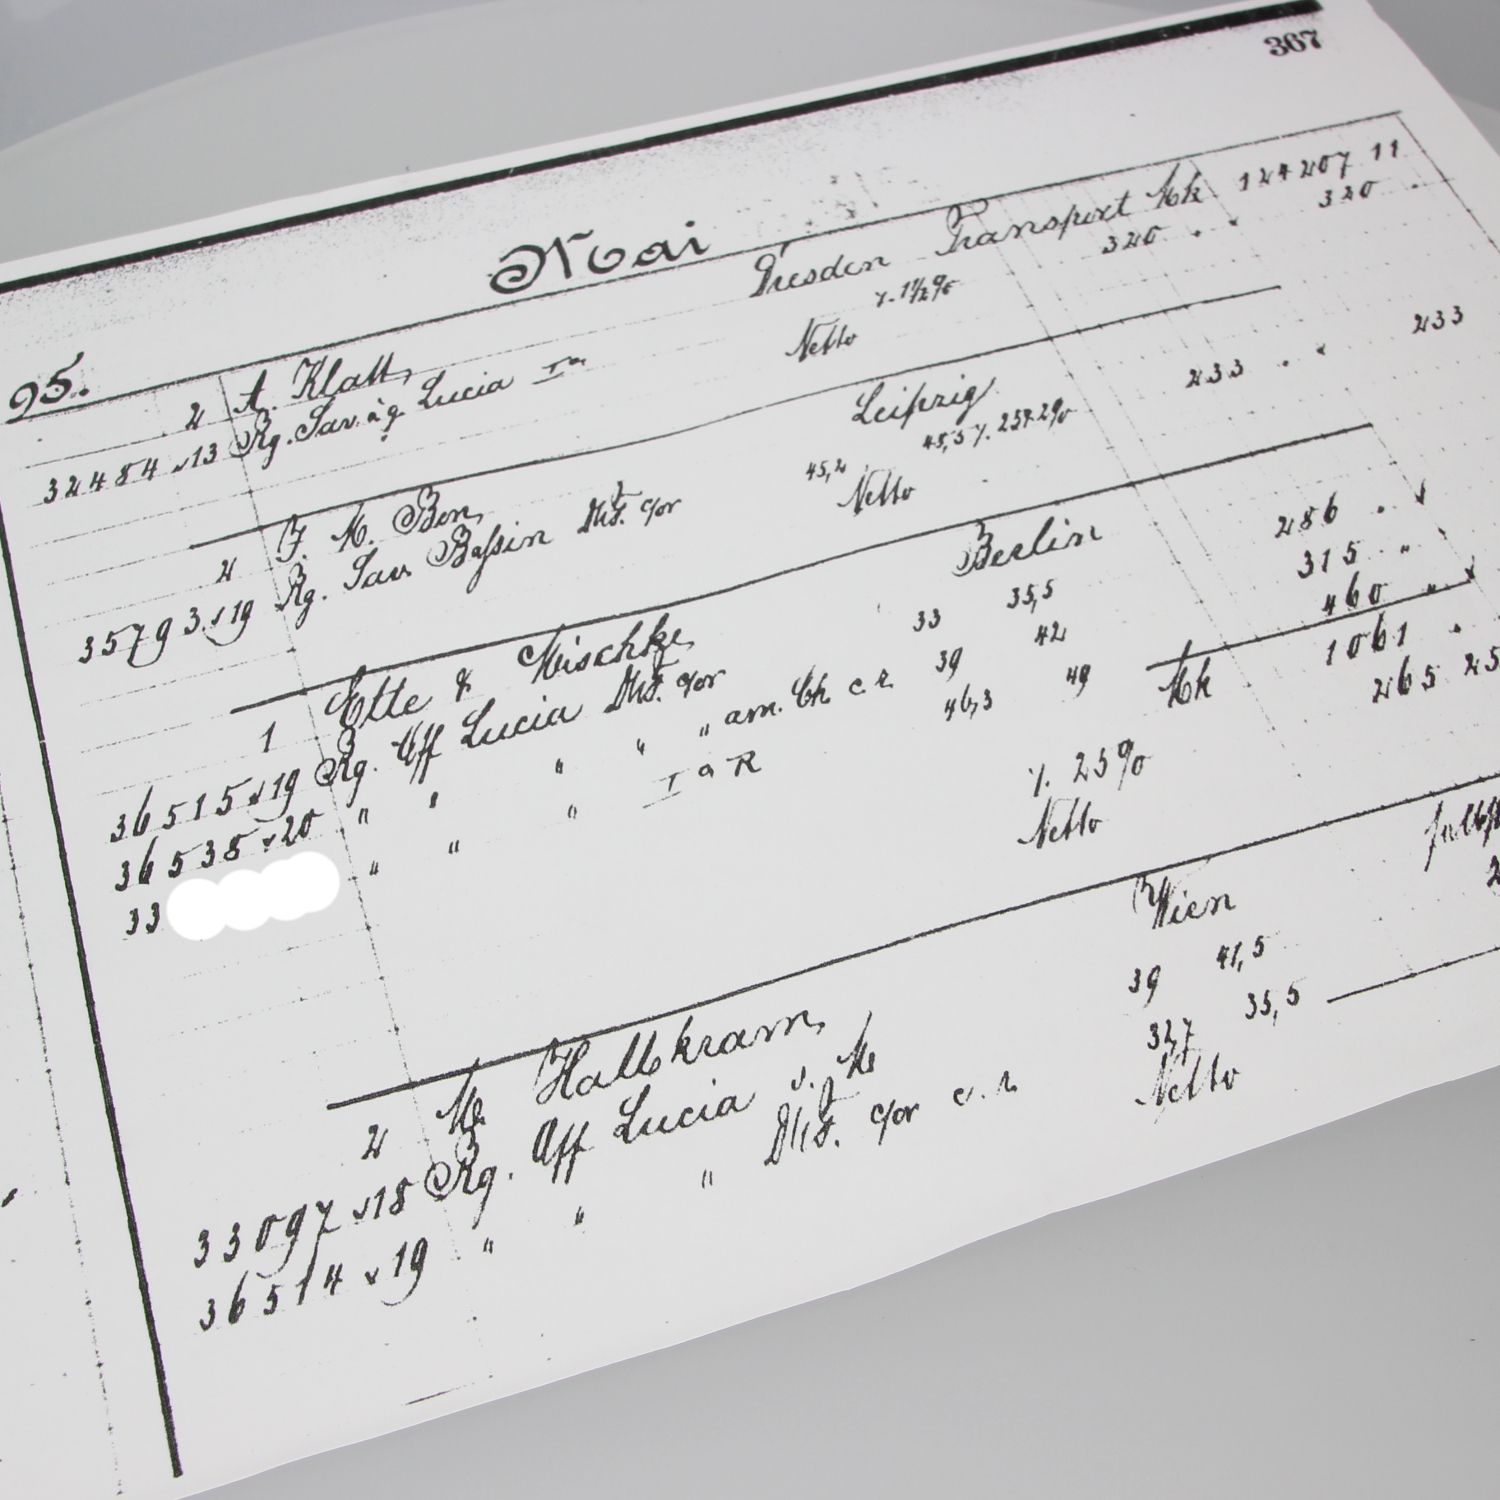 367
Mai
95. Dresden Transport Mk 124207 11
2 A. Klatt, % 1 1/2 % 320 . " 320 .
32484 v 13 Rg. Sav. à g Lucia Ia Netto
Leipzig
2 F. M. Bon, 45,2 45,5 % 25+2% 233 . " 233
35793 v 19 Rg. Sav. Bassin c/or Netto
Berlin
1 Ette & Mischke, 33 35,5 286 . "
36515 v 19 Rg. Aff Lucia c/or 39 42 315 . "
36538 v 20 " " " " " am. Ch c. r. 46,3 49 460 "
33 " " " Ia R Mk 1061 .
% 25% 265 25
Netto
Wien
2 M. Halbkram, 39 41,5
33097 v 18 Rg. Aff Lucia 32,7 35,5
36514 v 19 " " " c/or c. r. Netto